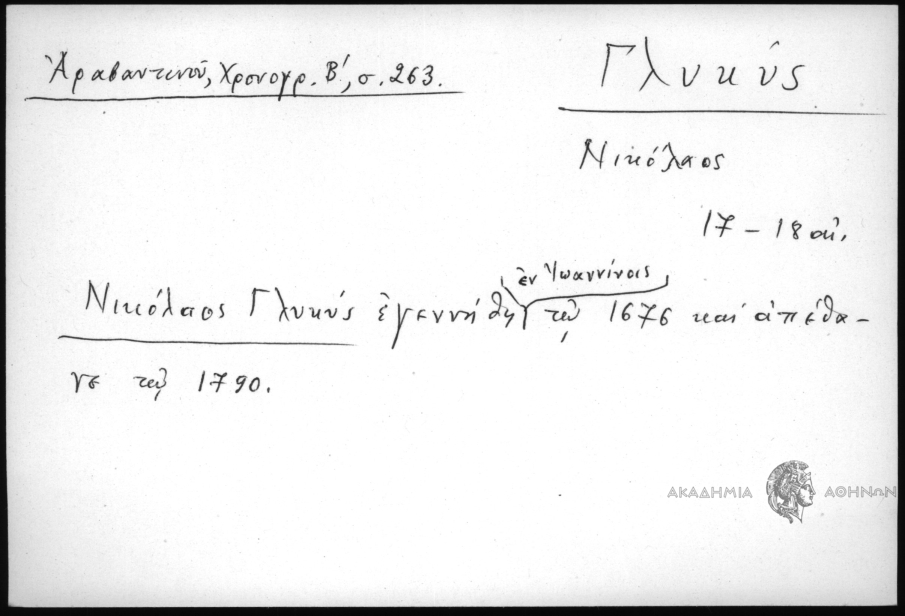 Ἀραβαντινοῦ, Χρονογρ. Β', σ. 263.
Γλυκύς
Νικόλαος
17 – 18 αἰ.
ἐν Ἰωαννίνοις
Νικόλαος Γλυκύς ἐγεννήθη τῷ 1676 καί ἀπέθα-
νε τῷ 1790.
ΑΚΑΔΗΜΙΑ ΑΘΗΝΩΝ